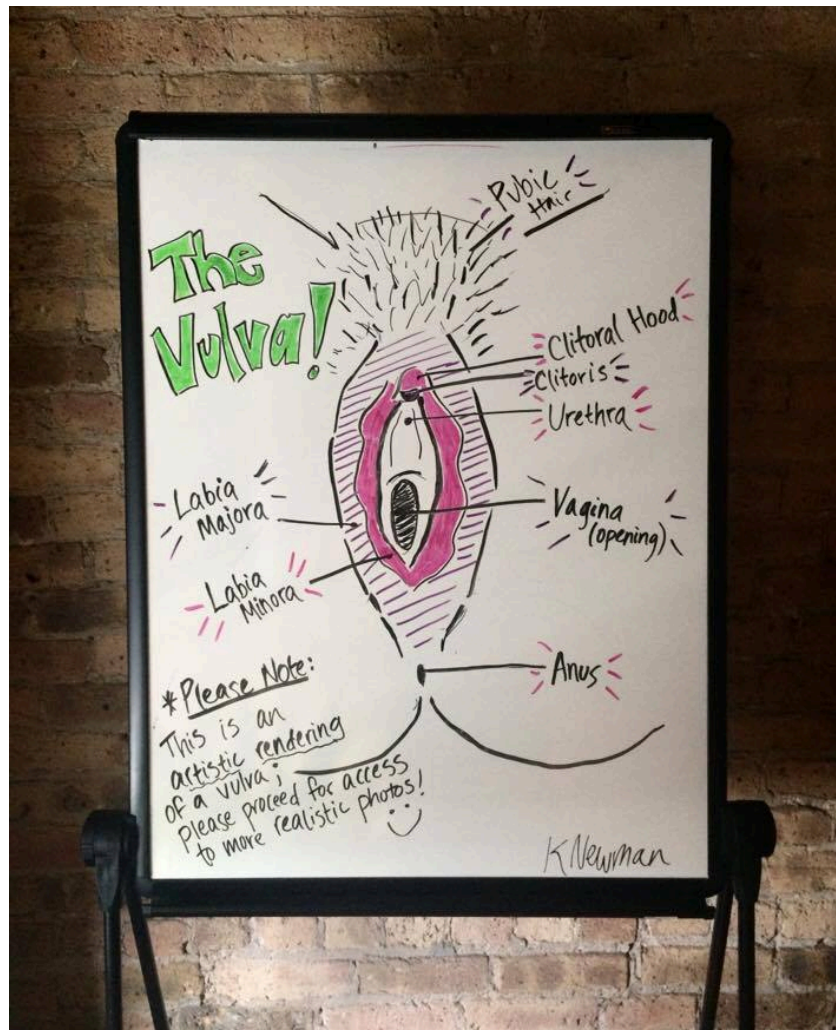 The
Vulva!
Pubic
Hair
Clitoral Hood
Clitoris
Urethra
Labia
Majora
Vagina
(opening)
Labia
Minora
Anus
*Please Note:
This is an
artistic rendering
of a vulva;
please proceed for access
to more realistic photos!
K Newman